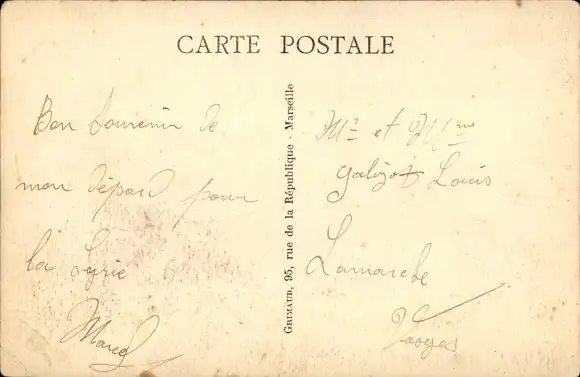 CARTE POSTALE
Bon Souvenir de
mon dépard pour
la Syrie
Marcel
GRIMAUD, 95, rue de la République - Marseille
Mr et Mme
Louis
Lamarche
Vosges